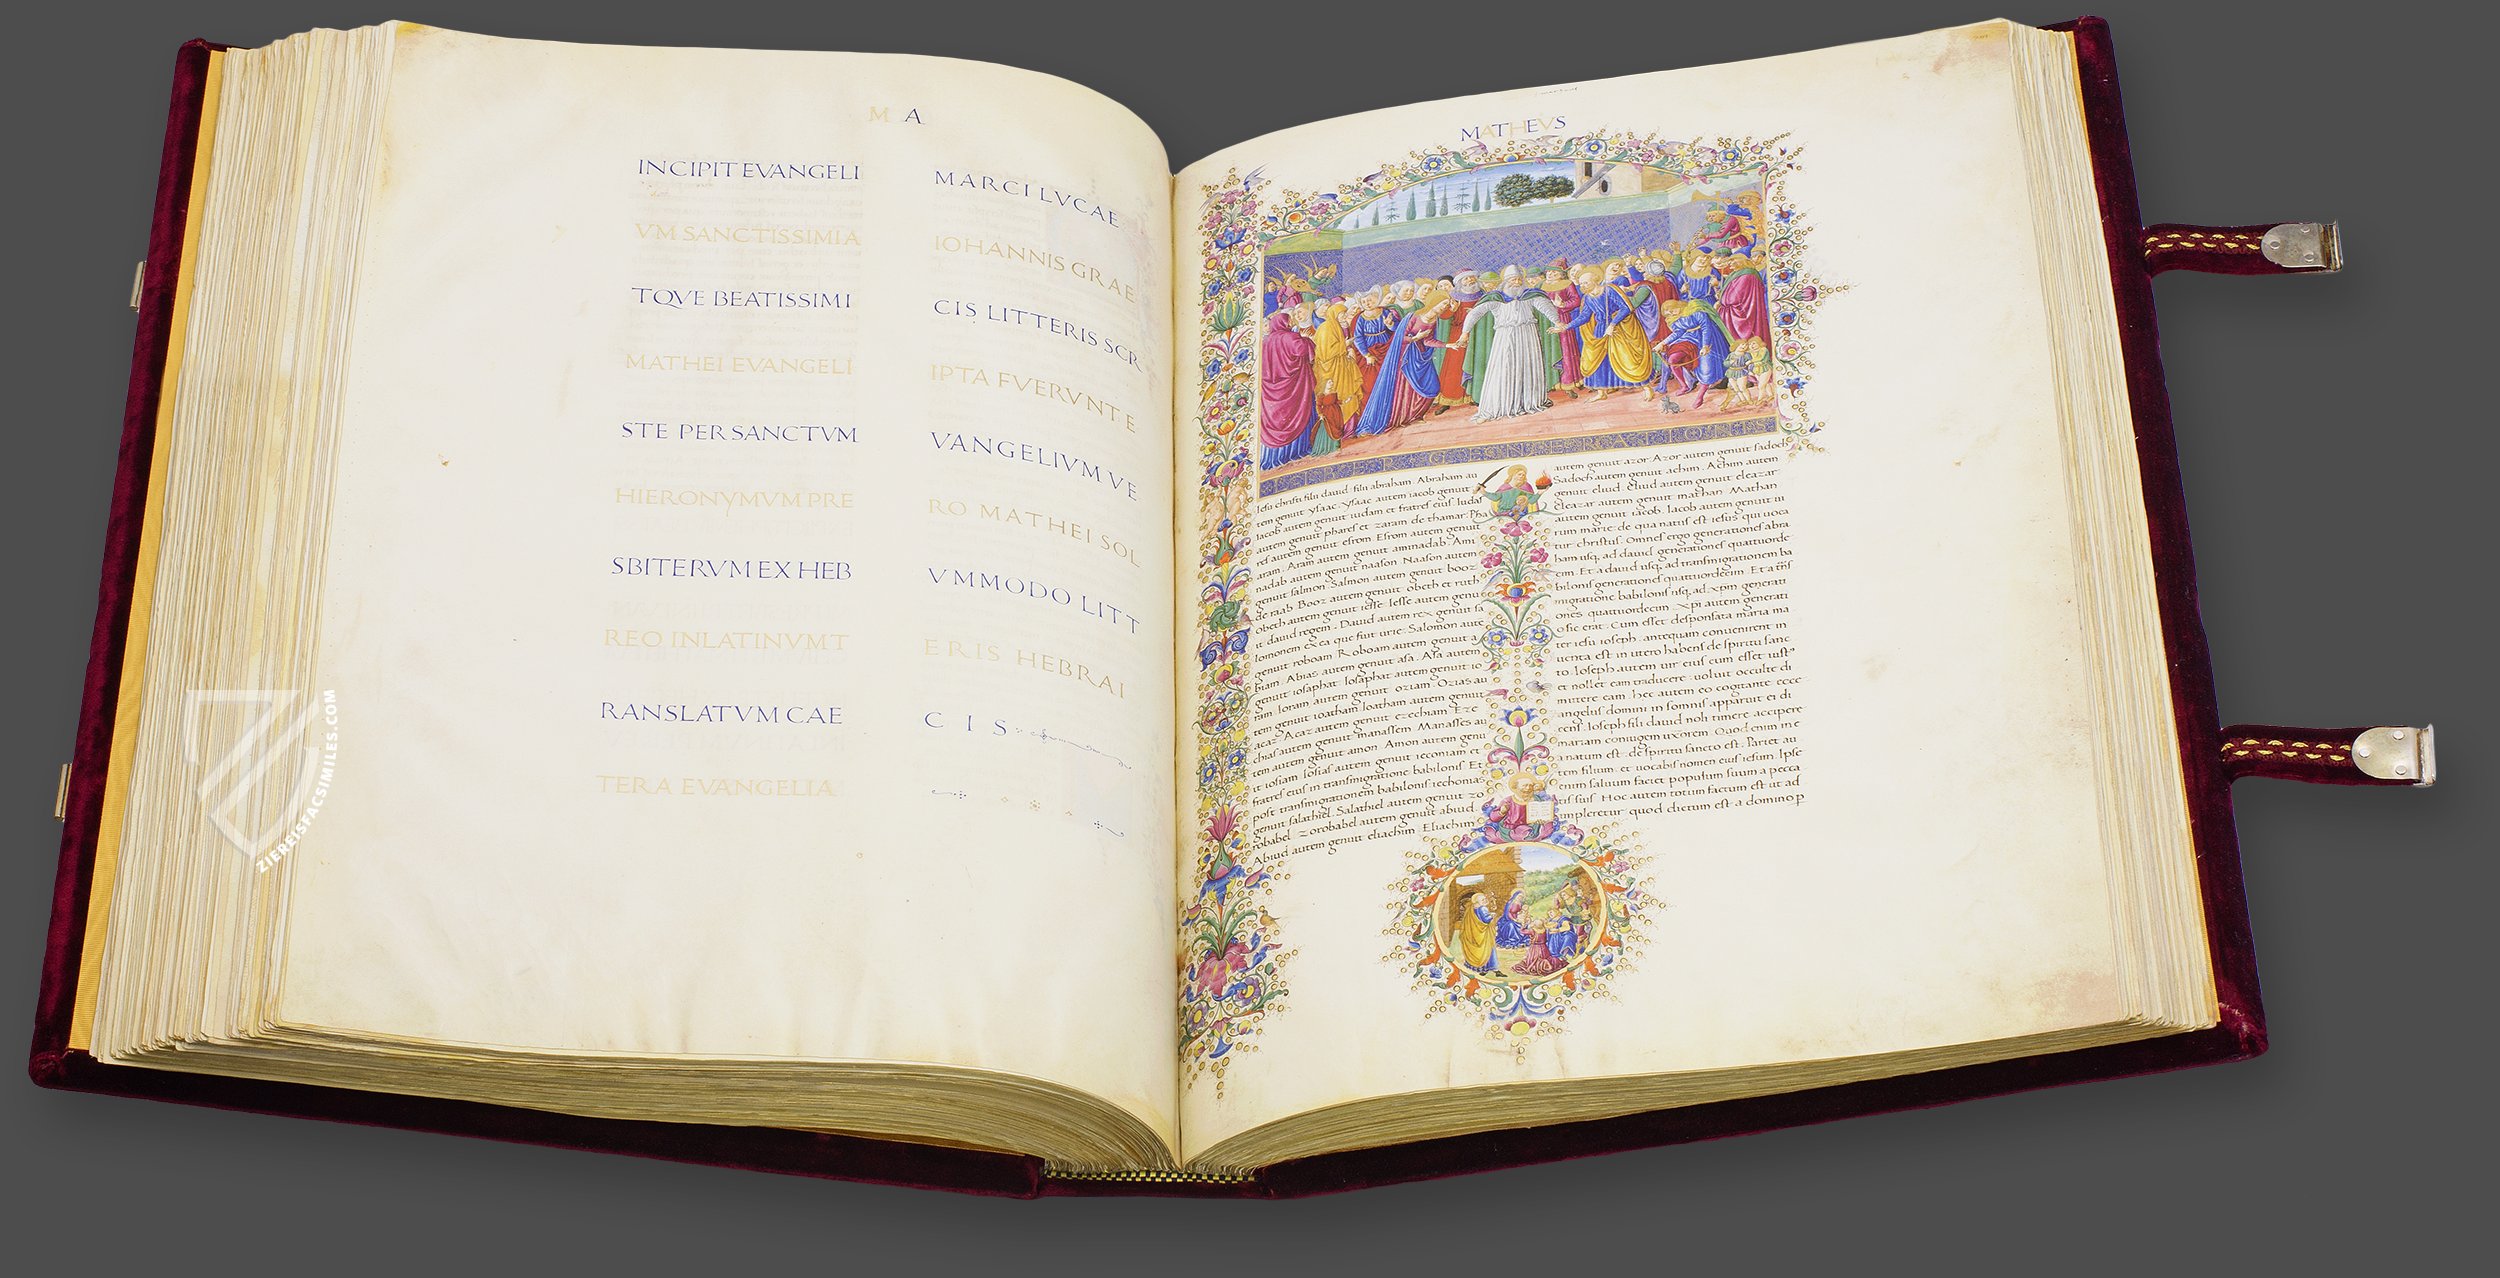 M A
INCIPIT EVANGELI
VM SANCTISSIMI A
TQVE BEATISSIMI
MATHEI EVANGELI
STE PER SANCTVM
HIERONYMVM PRE
SBITERVM EX HEB
REO IN LATINVM T
RANSLATVM CAE
TERA EVANGELIA
MARCI LVCAE
IOHANNIS GRAE
CIS LITTERIS SCR
IPTA FVERVNT E
VANGELIVM VE
RO MATHEI SOL
VMMODO LITT
ERIS HEBRAI
CIS
MATHEVS
LIBER GENERATIONIS
Iesu christi filii dauid. filii abraham. Abraham au
tem genuit ysaac. ysaac autem iacob genuit
Iacob autem genuit iudam et fratres eius. Iudas
autem genuit phares et zaram de thamar. Pha
res autem genuit esrom Esrom autem genuit
aram. Aram autem genuit aminadab. Ami
nadab autem genuit naason Naason autem
genuit salmon. Salmon autem genuit booz
de raab. Booz autem genuit obeth et ruth
obeth autem genuit iesse. Iesse autem genu
it dauid regem. Dauid autem rex genuit sa
lomonem ex ea que fuit urie. Salomon aute
genuit roboam Roboam autem genuit a
biam. Abias autem genuit asa. Asa autem
genuit iosaphat Iosaphat autem genuit io
ram. Ioram autem genuit oziam. Ozias au
tem genuit ioatham Ioatham autem genuit
acaz. Acaz autem genuit ezechiam. Eze
chias autem genuit manassem. Manasses au
tem autem genuit amon. Amon autem genu
it iosiam Iosias autem genuit ieconiam et
fratres eius in transmigratione babilonis Et
post transmigrationem babilonis iechonias
genuit salathiel. Salathiel autem genuit zo
robabel Zorobabel autem genuit abiud.
Abiud autem genuit eliachim. Eliachim
autem genuit azor. Azor autem genuit sadoch
Sadoch autem genuit achim. Achim autem
genuit eliud. Eliud autem genuit eleazar.
Eleazar autem genuit mathan Mathan
autem genuit iacob. Iacob autem genuit iu
rum marie. de qua natus est iesus qui uoca
tur christus. Omnes ergo generationes abra
ham usq, ad dauid generationes quattuorde
cim. Et a dauid usq, ad transmigrationem ba
bilonis generationes quattuordecim. Et a trns
migratione babilonis usq, ad xpm generati
ones quattuordecim. Xpi autem generati
o sic erat. Cum esset desponsata maria ma
ter iesu ioseph. antequam conuenirent in
uenta est in utero habens de spiritu sanc
to. Ioseph autem uir eius cum esset iust9
et nollet eam traducere. uoluit occulte di
mittere eam. hec autem eo cogitante ecce
angelus domini in somnis apparuit ei di
cens. Ioseph fili dauid noli timere accipere
mariam coniugem tuam. Quod enim in e
a natum est. de spiritu sancto est. Pariet au
tem filium. et uocabis nomen eius iesum. Ipse
enim saluum faciet populum suum a pecca
tis suis Hoc autem totum factum est ut ad
impleretur quod dictum est a domino p
ZIEREISFACSIMILES.COM